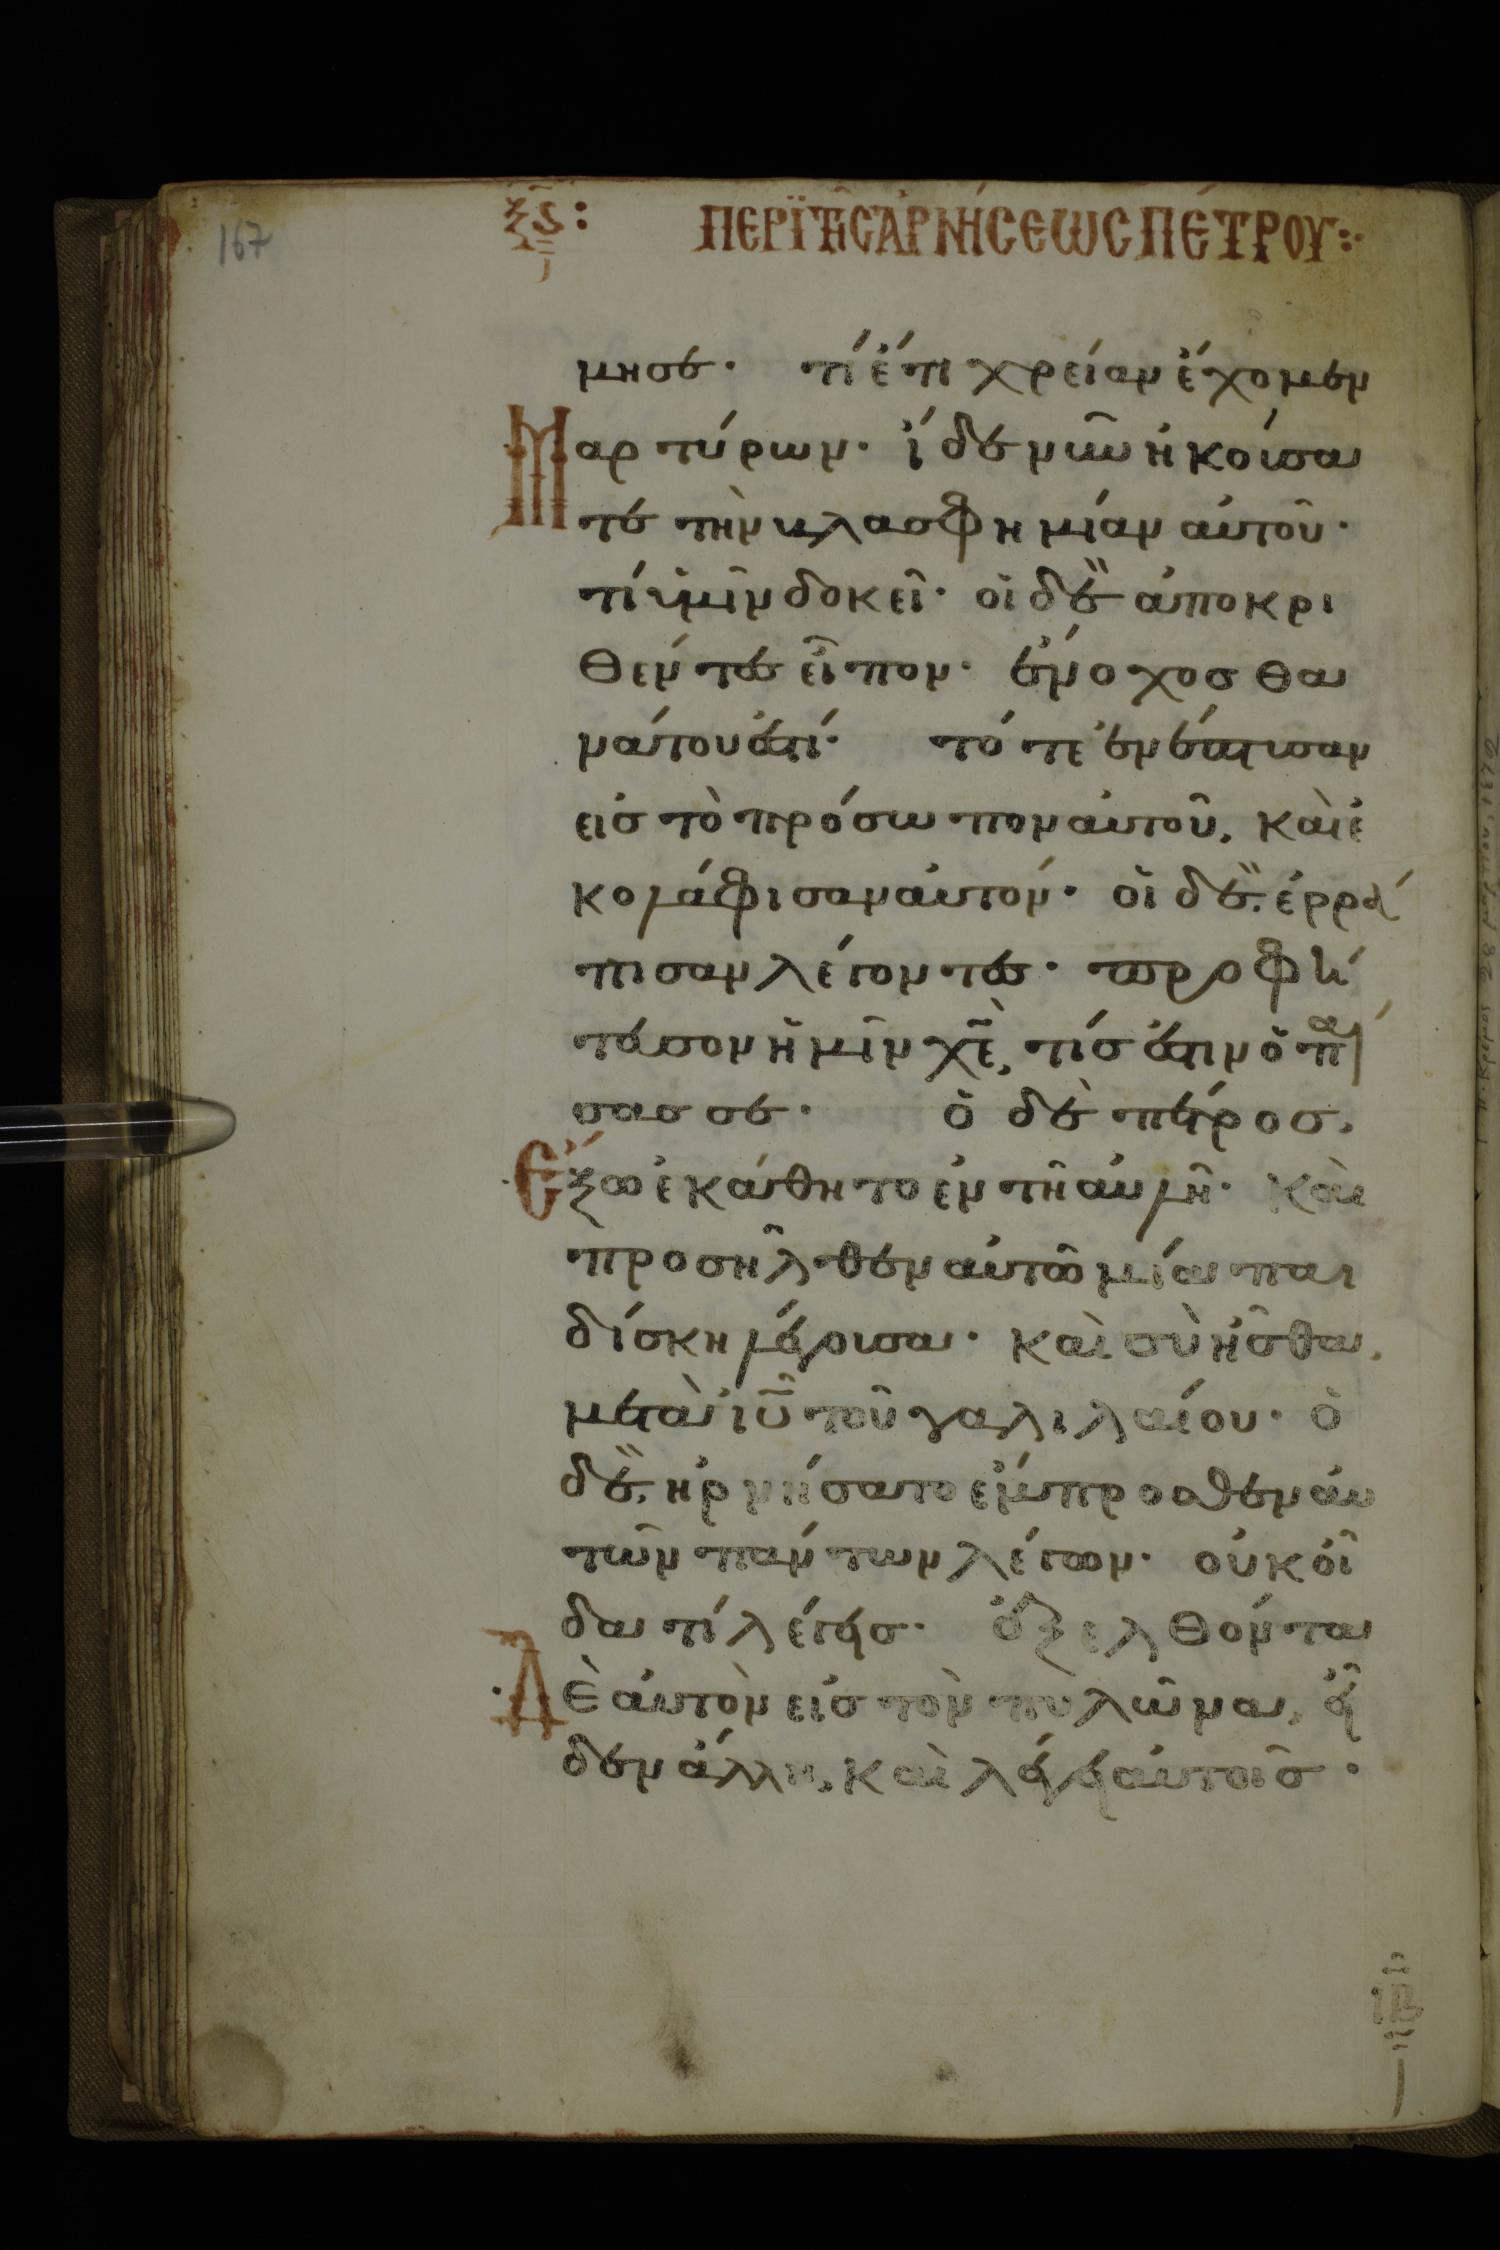 167
ξϛ: ΠΕΡΪ ΤΗ͂Σ ἈΡΝΉΣΕΩΣ ΠΈΤΡΟΥ:·
μησε· τί έτι χρείαν ἔχομεν
Μαρτύρων· ἴδε νῦν ἠκούσα
τε τὴν βλασφημίαν αὐτοῦ·
τί ὑμῖν δοκεῖ· οἱ δὲ ἀποκρι
θέντες εἶπον· ἔνοχος θα
νάτου ἐστί· τότε ἐνέπτυσαν
εἰς τὸ πρόσωπον αὐτοῦ, καὶ ἐ
κολάφισαν αὐτόν· οἱ δὲ ἐρρά
πισαν λέγοντες· προφή
τευσον ἡμῖν χ̅ε̅, τίς ἐστιν ὁ παί
σας σε· ὁ δὲ πέτρος,
Ἔξω ἐκάθητο ἐν τῆ αὐλῆ· καὶ
προσῆλθεν αὐτῶ μία παι
δίσκη λέγουσα· καὶ σὺ ἦσθα,
μετὰ ἰ̅υ̅ τοῦ γαλιλαίου· ὁ
δὲ ἠρνήσατο ἔμπροσθεν αὐ
τῶν πάντων λέγων· οὐκ οἶ
δα τί λέγεις· ἐξελθόντα
Δὲ αὐτὸν εἰς τὸν πυλῶνα, εἶ
δεν ἄλλη, καὶ λέγει αὐτοῖς·
ιβ